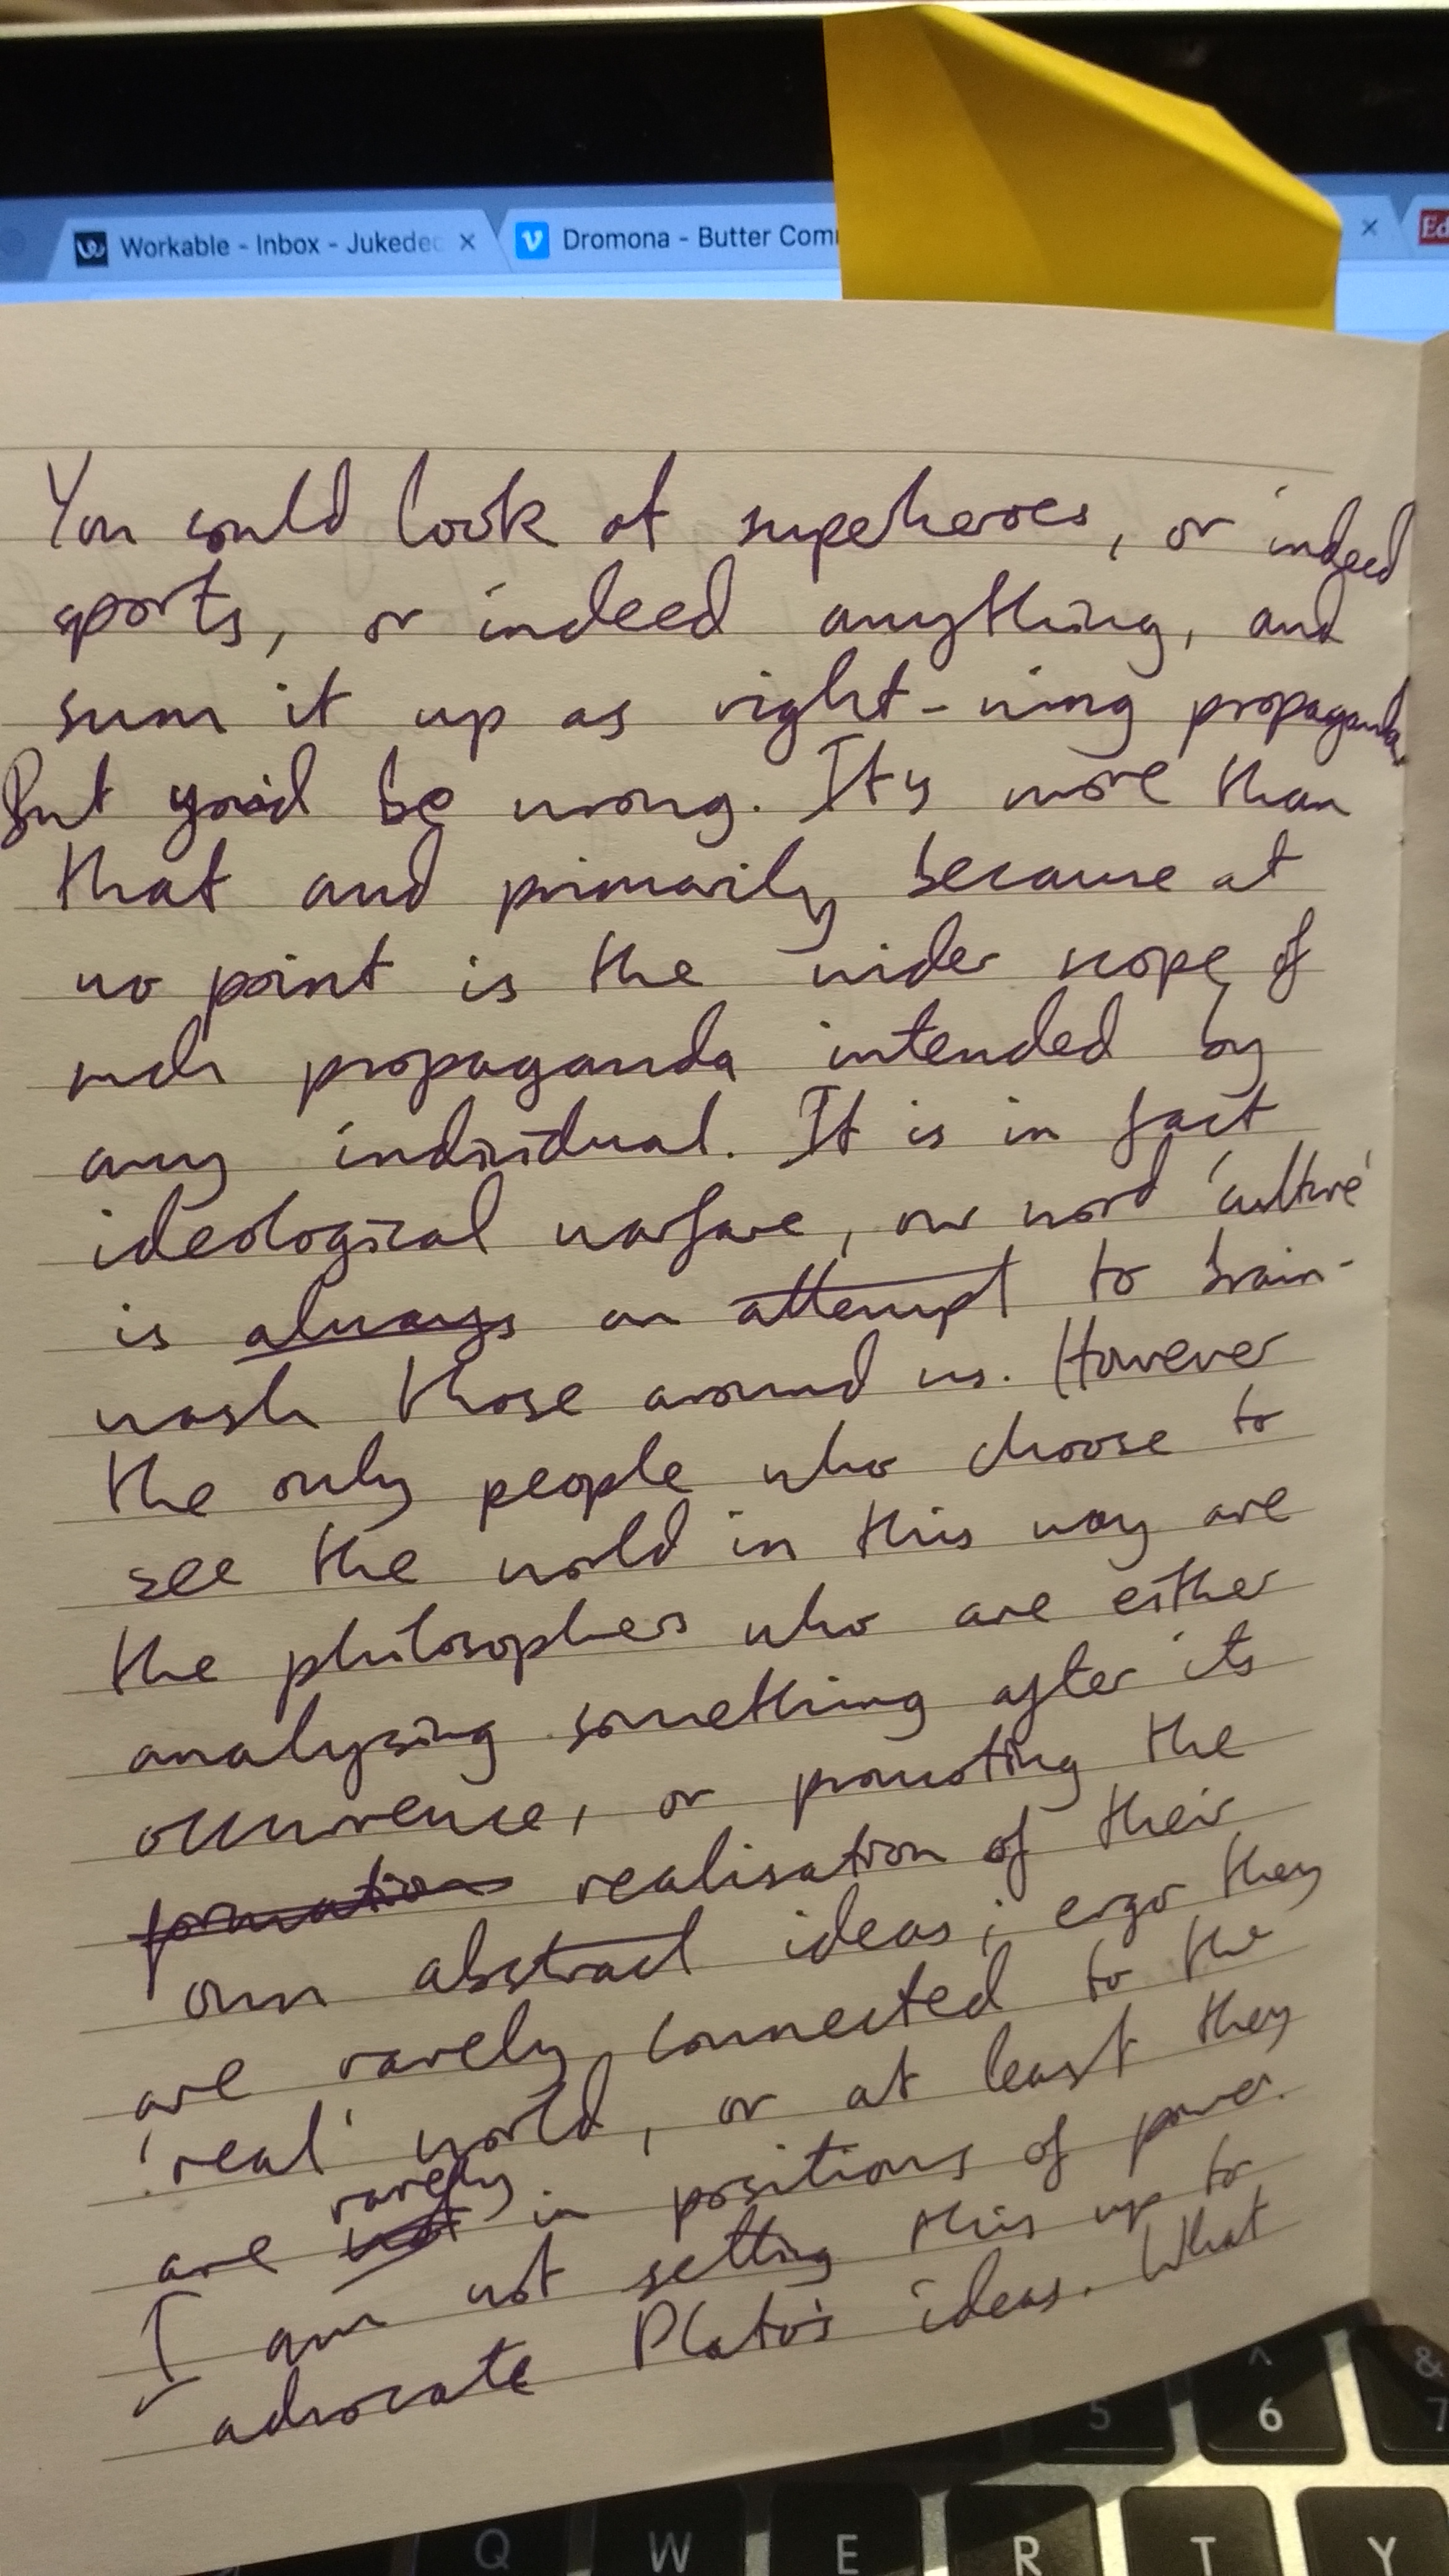 Workable - Inbox - Jukedec
Dromona - Butter Com
Ed
You could look at superheroes, or indeed
sports, or indeed anything, and
sum it up as right-wing propaganda.
But you'd be wrong. It's more than
that and primarily because at
no point is the wider scope of
such propaganda intended by
any individual. It is in fact
ideological warfare, our word 'culture'
is always an attempt to brain-
wash those around us. However
the only people who choose to
see the world in this way are
the philosophers who are either
analysing something after its
occurrence, or promoting the
formation realisation of their
own abstract ideas; ergo they
are rarely connected to the
'real' world, or at least they
rarely
are not in positions of power.
I am not setting this up to
advocate Plato's ideas. What
5 6 & 7
Q W E R T Y